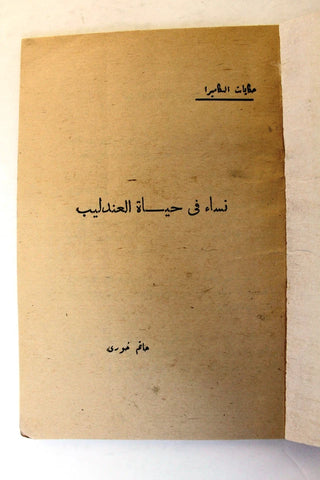 حكايات الكاميرا
نساء فى حياة العندليب
حاتم خورى